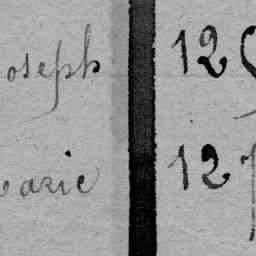 oseph 12
arie 12